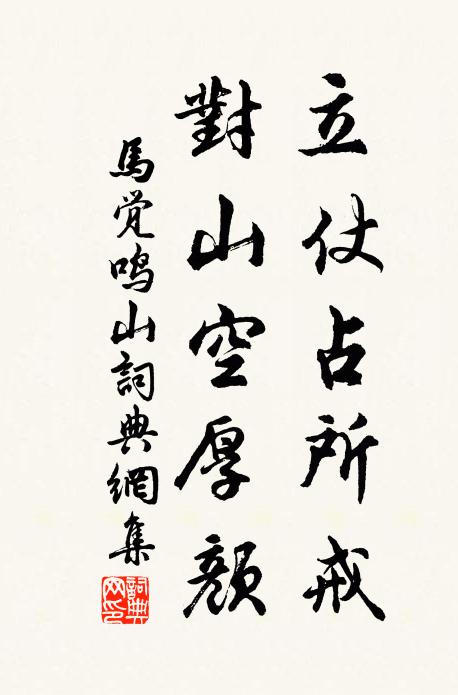 立仗占所戒
對山空厚顏
馬觉鸣山詞典網集
詞典網印